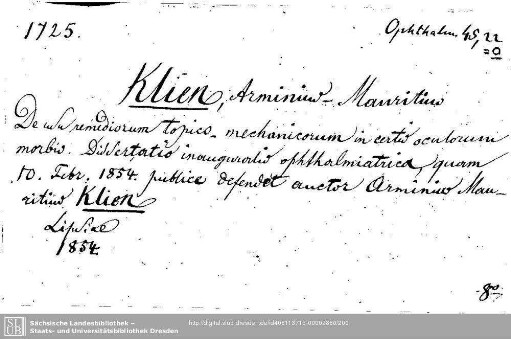 1725.
Ophthalm. 45, 22
= 0
Klien, Arminius-Mauritius
De usu remediorum topico-mechanicorum in certis oculorum
morbis. Dissertatio inauguralis ophthalmiatrica, quam
10. Febr. 1854. publice defendet auctor Arminius Mau-
ritius Klien
Lipsiae
1854.
8º
SLUB
Sächsische Landesbibliothek –
Staats- und Universitätsbibliothek Dresden